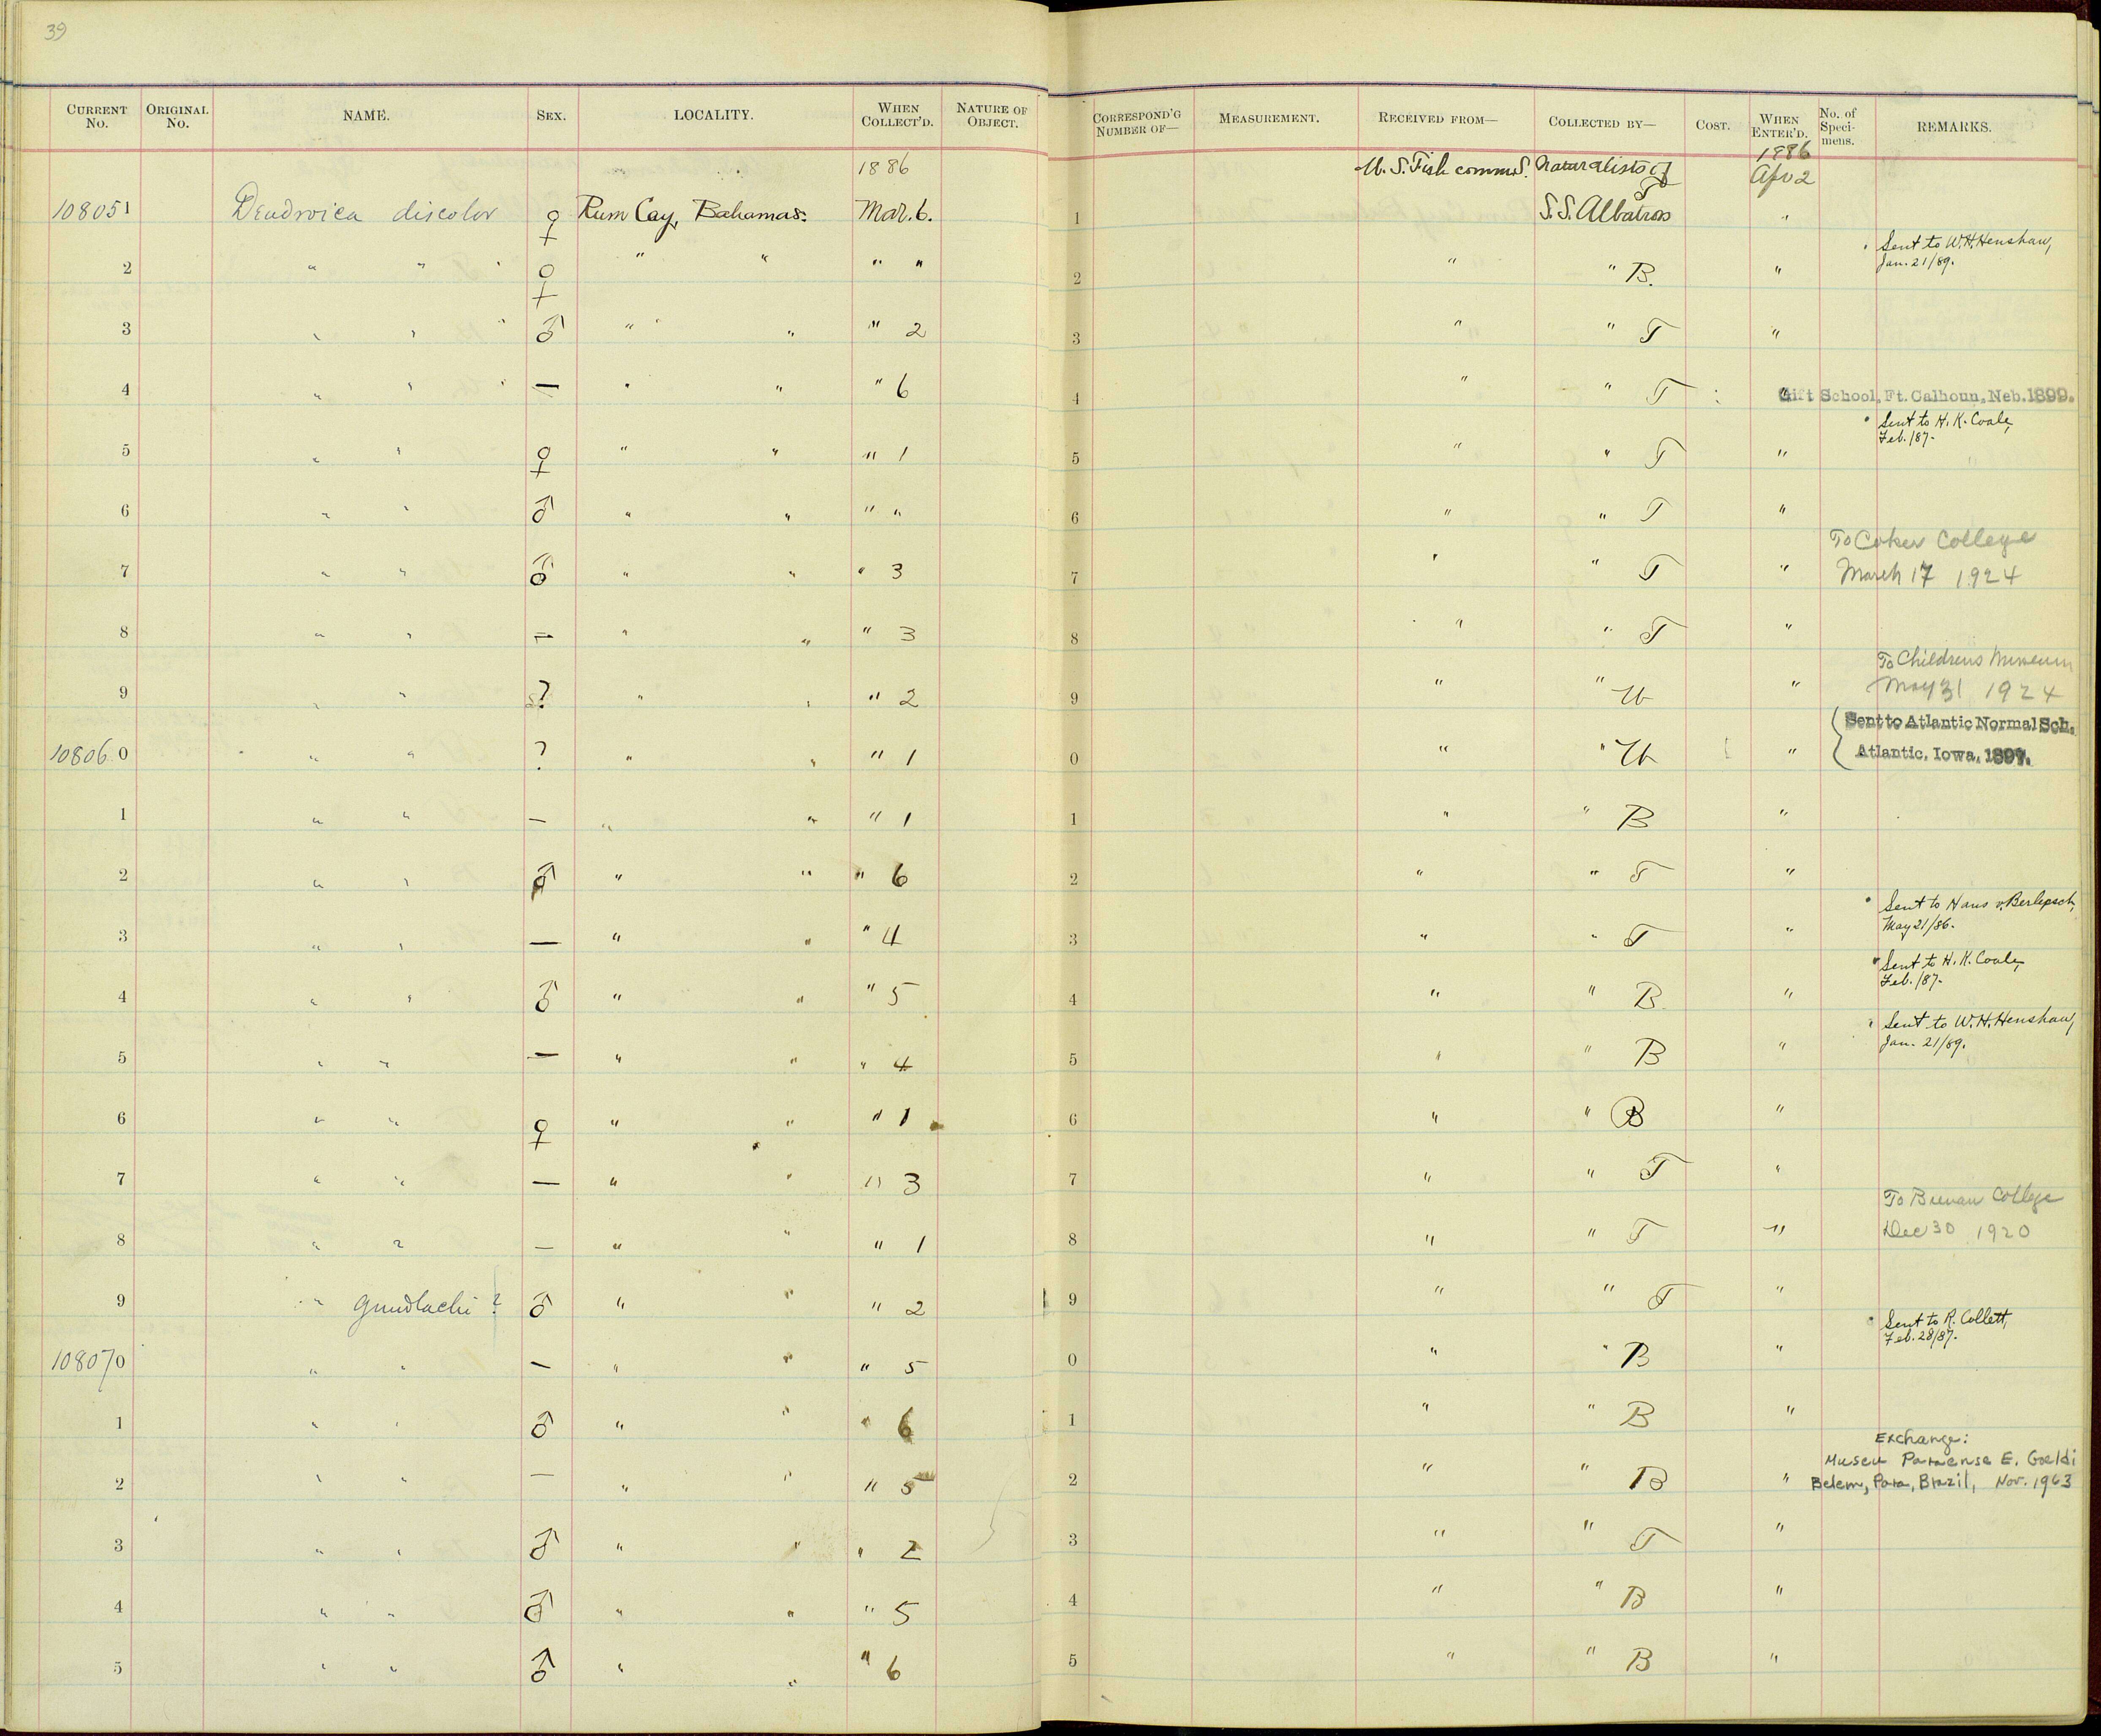 39
CURRENT No. ORIGINAL No. NAME. SEX. LOCALITY. WHEN COLLECT'D. NATURE OF OBJECT. CORRESPOND'G NUMBER OF— MEASUREMENT. RECEIVED FROM— COLLECTED BY— COST. WHEN ENTER'D. No. of Speci-mens. REMARKS.
1886 U. S. Fish comms. Naturalists of 1886 Apr 2
108051 Dendroica discolor ♀ Rum Cay, Bahamas. Mar. 6. 1 S.S. Albatross T "
2 " " ♀ " " " " 2 " " B. " Sent to W.H. Henshaw, Jan. 21/89.
3 " " ♂ " " " 2 3 " " T "
4 " " — " " " 6 4 " " T " Gift School, Ft. Calhoun, Neb. 1899.
5 " " ♀ " " " 1 5 " " T " Sent to H. K. Coale, Feb. /87.
6 " " ♂ " " " " 6 " " T "
7 " " ♂ " " " 3 7 " " T " To Coker College March 17 1924
8 " " — " " " 3 8 " " T "
9 " " ? " " " 2 9 " " " To Childrens Museum May 31 1924
108060 " " ? " " " 1 0 " " " Sent to Atlantic Normal Sch. Atlantic, Iowa,
1 " " — " " " 1 1 " " B "
2 " " ♂ " " " 6 2 " " T "
3 " " — " " " 4 3 " " T " Sent to Hans v. Berlepsch, May 21/86.
4 " " ♂ " " " 5 4 " " B " Sent to H. K. Coale, Feb. /87.
5 " " — " " " 4 5 " " B " Sent to W. H. Henshaw, Jan. 21/89.
6 " " ♀ " " " 1 6 " " B "
7 " " — " " " 3 7 " " T "
8 " " — " " " 1 8 " " T " To College Dec 30 1920
9 " gundlachi ? ♂ " " " 2 9 " " T "
108070 " " — " " " 5 0 " " B " Sent to R. Collett, Feb. 28/87.
1 " " ♂ " " " 6 1 " " B "
2 " " — " " " 5 2 " " B " Exchange: Museu Paraense E. Goeldi Belem, Para, Brazil, Nov. 1963
3 " " ♂ " " " 2 3 " " T "
4 " " ♂ " " " 5 4 " " B "
5 " " ♂ " " " 6 5 " " B "